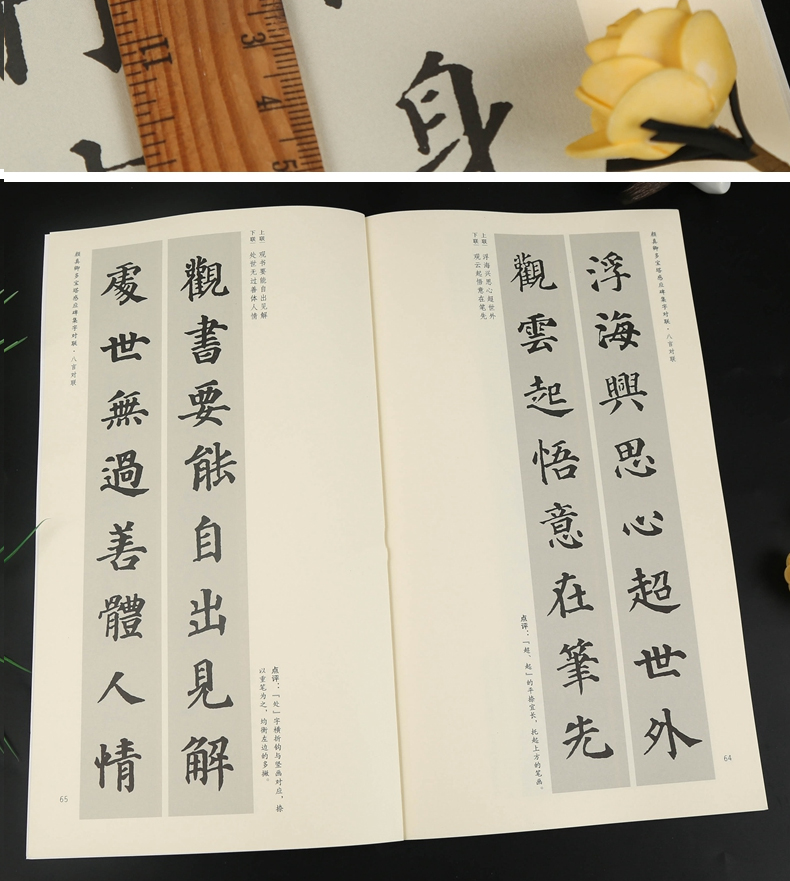 身
11
3
4
5
颜真卿多宝塔感应碑集字对联·八言对联
浮海興思心超世外
觀雲起悟意在筆先
上联 浮海兴思心超世外
下联 观云起悟意在笔先
点评：“超、起”的平捺宜长，托起上方的笔画。
64
上联 观书要能自出见解
下联 处世无过善体人情
觀書要能自出見解
處世無過善體人情
颜真卿多宝塔感应碑集字对联·八言对联
点评：“处”字横折钩与竖画对应，捺
以重笔为之，均衡左边的多撇。
65